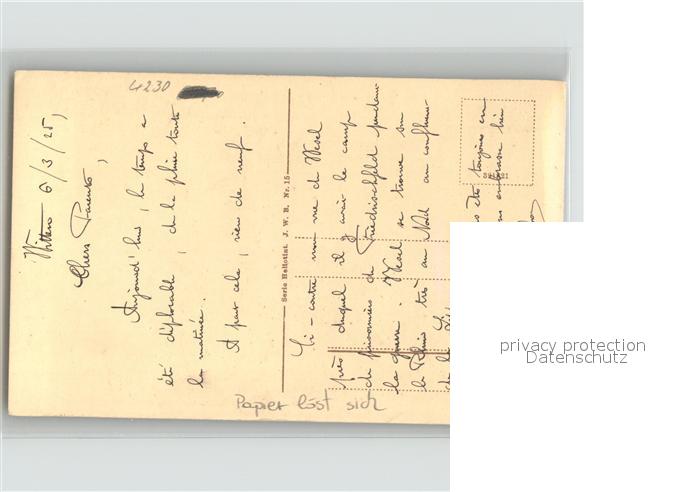 4230
Witten 6/3/25,
Chers Parents,
Aujourd'hui, le temps a
été déplorable, de la pluie toute
la matinée.
A part cela, rien de neuf.
Serie Heliotint. J. W. B. Nr. 15
Ci-contre une vue de Wesel
près duquel il y avait le camp
de prisonniers de Friedrichsfeld pendant
la guerre. Wesel se trouve sur
le Rhin très au Nord au confluent
de la
toujours en
embrasse bien
Papier löst sich
privacy protection
Datenschutz